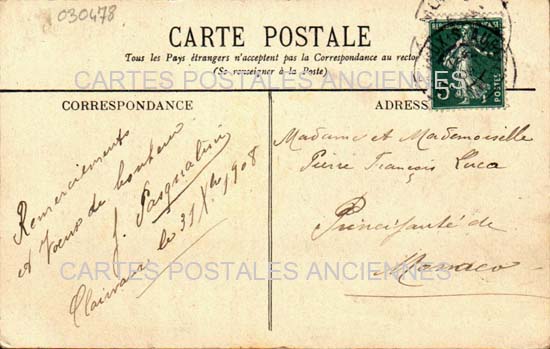 030478
CARTE POSTALE
Tous les Pays étrangers n'acceptent pas la Correspondance au recto
(Se renseigner à la Poste)
CARTES POSTALES ANCIENNES
CORRESPONDANCE
ADRESS
5
POSTES
Remerciements
et Voeux de bonheur
J. Pasqualini
le 31 Xbre 1908
Madame et Mademoiselle
Pierre François Luca
Principauté de
Monaco
CARTES POSTALES ANCIENNES